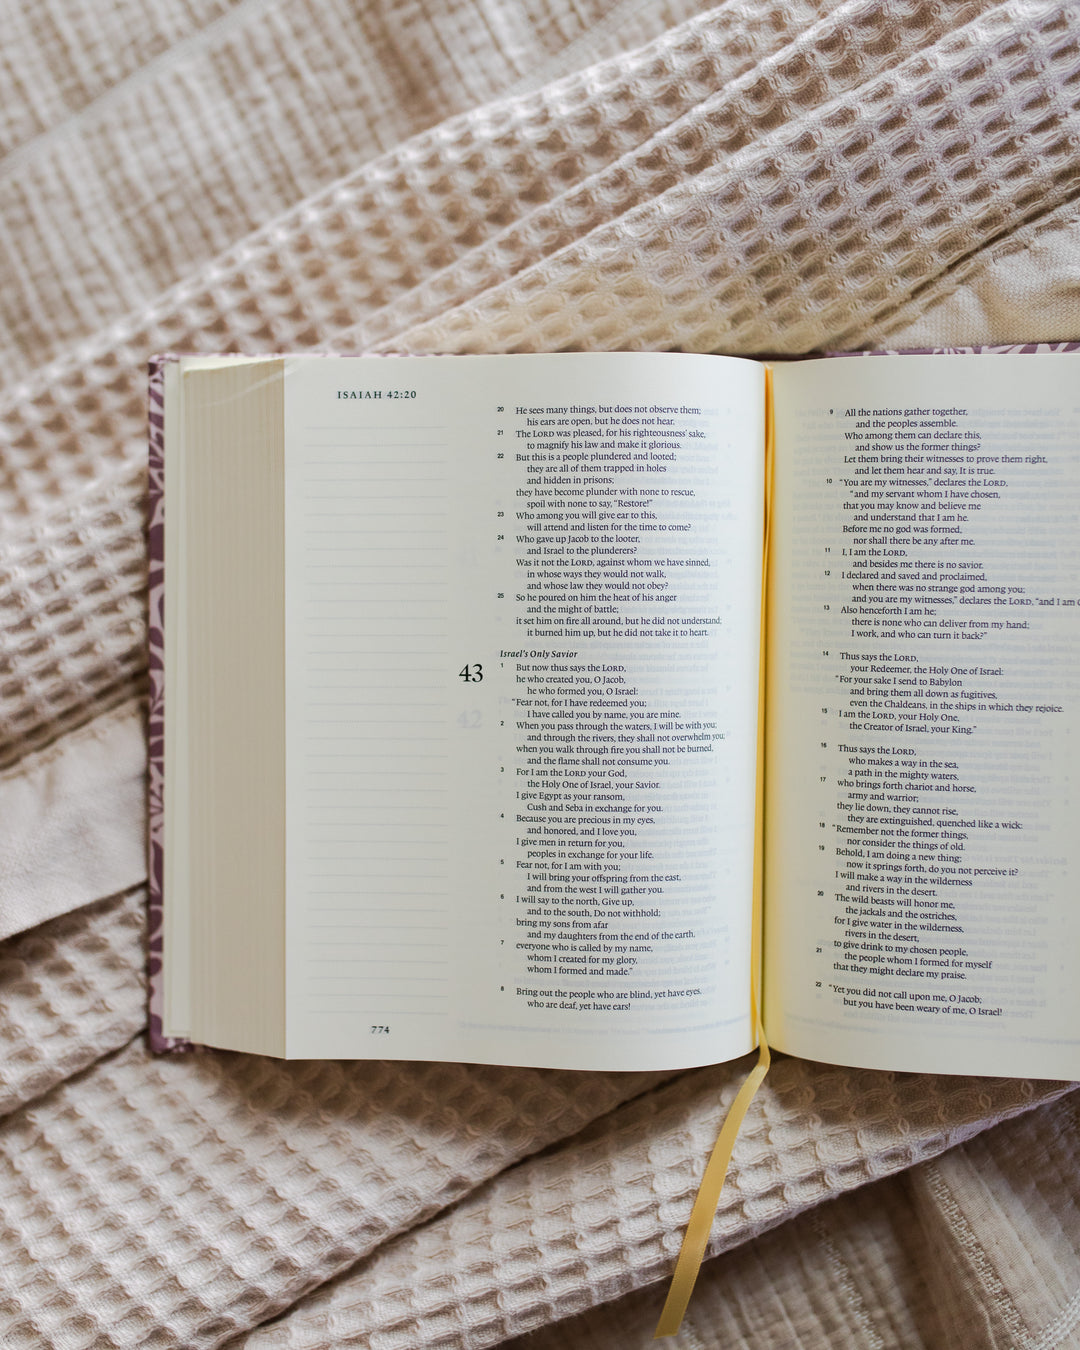 ISAIAH 42:20
20 He sees many things, but does not observe them;
his ears are open, but he does not hear.
21 The LORD was pleased, for his righteousness' sake,
to magnify his law and make it glorious.
22 But this is a people plundered and looted;
they are all of them trapped in holes
and hidden in prisons;
they have become plunder with none to rescue,
spoil with none to say, “Restore!”
23 Who among you will give ear to this,
will attend and listen for the time to come?
24 Who gave up Jacob to the looter,
and Israel to the plunderers?
Was it not the LORD, against whom we have sinned,
in whose ways they would not walk,
and whose law they would not obey?
25 So he poured on him the heat of his anger
and the might of battle;
it set him on fire all around, but he did not understand;
it burned him up, but he did not take it to heart.
Israel's Only Savior
43 1 But now thus says the LORD,
he who created you, O Jacob,
he who formed you, O Israel:
“Fear not, for I have redeemed you;
I have called you by name, you are mine.
2 When you pass through the waters, I will be with you;
and through the rivers, they shall not overwhelm you;
when you walk through fire you shall not be burned,
and the flame shall not consume you.
3 For I am the LORD your God,
the Holy One of Israel, your Savior.
I give Egypt as your ransom,
Cush and Seba in exchange for you.
4 Because you are precious in my eyes,
and honored, and I love you,
I give men in return for you,
peoples in exchange for your life.
5 Fear not, for I am with you;
I will bring your offspring from the east,
and from the west I will gather you.
6 I will say to the north, Give up,
and to the south, Do not withhold;
bring my sons from afar
and my daughters from the end of the earth,
7 everyone who is called by my name,
whom I created for my glory,
whom I formed and made.”
8 Bring out the people who are blind, yet have eyes,
who are deaf, yet have ears!
774
9 All the nations gather together,
and the peoples assemble.
Who among them can declare this,
and show us the former things?
Let them bring their witnesses to prove them right,
and let them hear and say, It is true.
10 “You are my witnesses,” declares the LORD,
“and my servant whom I have chosen,
that you may know and believe me
and understand that I am he.
Before me no god was formed,
nor shall there be any after me.
11 I, I am the LORD,
and besides me there is no savior.
12 I declared and saved and proclaimed,
when there was no strange god among you;
and you are my witnesses,” declares the LORD, “and I am
13 Also henceforth I am he;
there is none who can deliver from my hand;
I work, and who can turn it back?”
14 Thus says the LORD,
your Redeemer, the Holy One of Israel:
“For your sake I send to Babylon
and bring them all down as fugitives,
even the Chaldeans, in the ships in which they rejoice.
15 I am the LORD, your Holy One,
the Creator of Israel, your King.”
16 Thus says the LORD,
who makes a way in the sea,
a path in the mighty waters,
17 who brings forth chariot and horse,
army and warrior;
they lie down, they cannot rise,
they are extinguished, quenched like a wick:
18 “Remember not the former things,
nor consider the things of old.
19 Behold, I am doing a new thing;
now it springs forth, do you not perceive it?
I will make a way in the wilderness
and rivers in the desert.
20 The wild beasts will honor me,
the jackals and the ostriches,
for I give water in the wilderness,
rivers in the desert,
to give drink to my chosen people,
21 the people whom I formed for myself
that they might declare my praise.
22 “Yet you did not call upon me, O Jacob;
but you have been weary of me, O Israel!